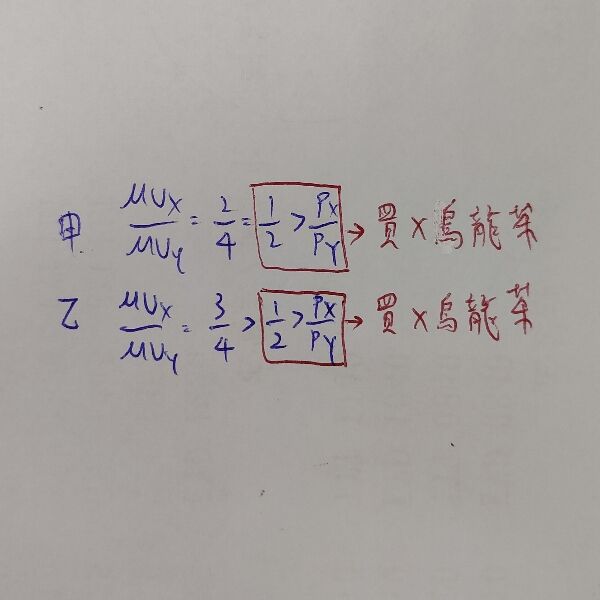 甲 MUx/MUy = 2/4 = 1/2 > Px/Py → 買 X 烏龍茶
乙 MUx/MUy = 3/4 > 1/2 > Px/Py → 買 X 烏龍茶